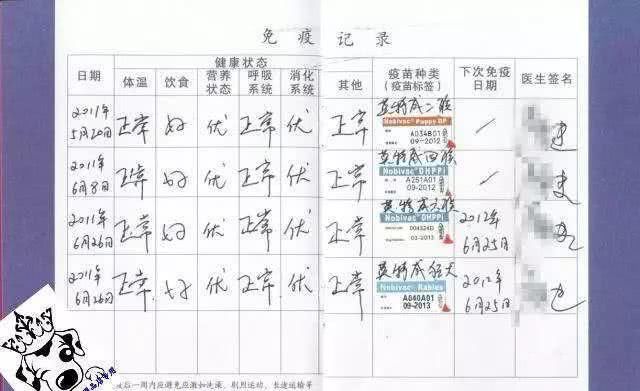 免疫记录
日期
健康状态
体温
饮食
营养状态
呼吸系统
消化系统
其他
疫苗种类
(疫苗标签)
下次免疫日期
医生签名
2011年5月20日 正常 好 优 正常 优 正常 英特威二联
Nobivac Puppy DP
A034B01
09-2012
2011年6月8日 正常 好 优 正常 优 正常 英特威四联
Nobivac DHPPi
A251A01
09-2012
2011年6月26日 正常 好 优 正常 优 正常 英特威六联 2012年6月25日
Nobivac DHPPi
03-2013
2011年6月26日 正常 好 优 正常 优 正常 英特威狂犬 2012年6月25日
Nobivac Rabies
A040A01
09-2013
后一周内应避免应激如洗澡、剧烈运动、长途运输等